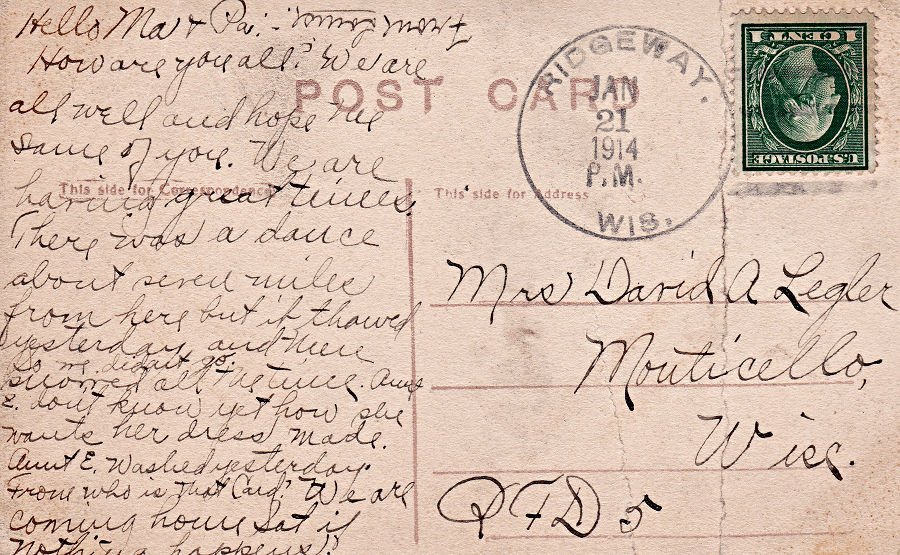 Hello Ma & Pa:-
How are you all? We are
all well and hope the
same of you. We are
having great times.
There was a dance
about seven miles
from here but it thawed
yesterday and then
So we didn't go.
snowed all the time. Aunt
E. don't know yet how she
wants her dress made.
Aunt E. Washed yesterday.
From who is that Card? We are
coming home Sat if
nothing happens.
From
POST CARD
This side for Correspondence
This side for Address
RIDGEWAY.
JAN
21
1914
P.M.
WIS.
U.S. POSTAGE
1 CENT 1
Mrs David A Legler
Monticello,
Wisc.
RFD 5